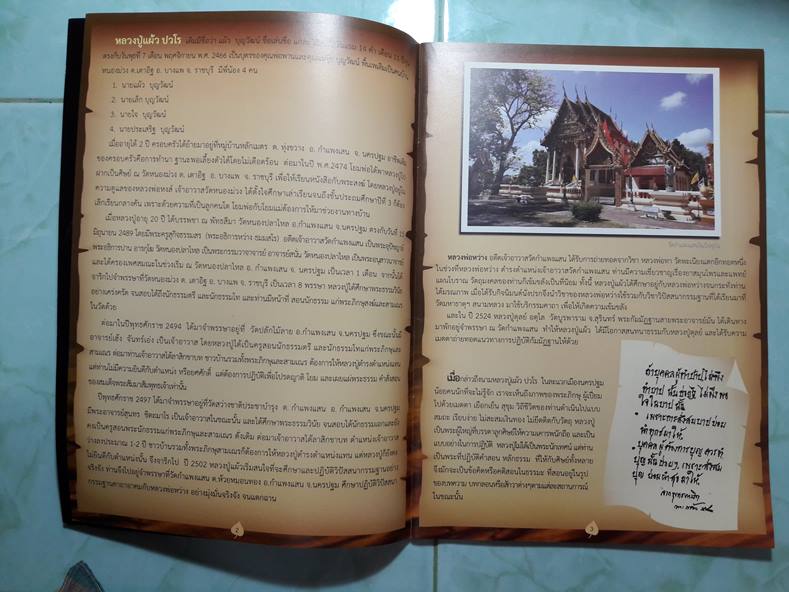 หลวงปู่แผ้ว ปวโร เดิมมีชื่อว่า แผ้ว บุญวัฒน์
ตรงกับวันพุธที่ 7 เดือน พฤศจิกายน พ.ศ. 2466 เป็นบุตรของคุณพ่อ
หนองม่วง ต.เตาอิฐ อ. บางแพ จ. ราชบุรี มีพี่น้อง 4 คน
1. นายแผ้ว บุญวัฒน์
2. นายเล็ก บุญวัฒน์
3. นายใจ บุญวัฒน์
4. นายประเสริฐ บุญวัฒน์
เมื่ออายุได้ 2 ปี ครอบครัวได้ย้ายมาอยู่ที่หมู่บ้านหลักเมตร ต. ทุ่งขวาง อ. กำแพงแสน จ. นครปฐม
ของครอบครัวคือการทำนา ฐานะพอเลี้ยงตัวได้โดยไม่เดือดร้อน ต่อมาในปี พ.ศ.2474 โยมพ่อได้พาหลวงปู่ไป
ฝากเป็นศิษย์ ณ วัดหนองม่วง ต. เตาอิฐ อ. บางแพ จ. ราชบุรี เพื่อให้เรียนหนังสือกับพระสงฆ์ โดยหลวงปู่อยู่ใน
ความดูแลของหลวงพ่อหงส์ เจ้าอาวาสวัดหนองม่วง ได้ตั้งใจศึกษาเล่าเรียนจนถึงชั้นประถมศึกษาปีที่ 3 ก็ต้อง
เลิกเรียนกลางคัน เพราะด้วยความที่เป็นลูกคนโต โยมพ่อกับโยมแม่ต้องการให้มาช่วยงานทางบ้าน
เมื่อหลวงปู่อายุ 20 ปี ได้บรรพชา ณ พัทธสีมา วัดหนองปลาไหล อ.กำแพงแสน จ.นครปฐม ตรงกับวันที่
มิถุนายน 2489 โดยมีพระครูสุกิจธรรมสร (พระอธิการหว่าง ธมมสโร) อดีตเจ้าอาวาสวัดกำแพงแสน เป็นพระอุปัชฌาย์
พระอธิการปาน วัดหนองปลาไหล เป็นพระกรรมวาจาจารย์ อาจารย์สนั่น วัดหนองปลาไหล เป็นพระอนุสาวนาจารย์
และได้ครองเพศสมณะในช่วงเริ่ม ณ วัดหนองปลาไหล อ. กำแพงแสน จ. นครปฐม เป็นเวลา 1 เดือน จากนั้นได้
จาริกไปจำพรรษาที่วัดหนองม่วง ต. เตาอิฐ อ. บางแพ จ. ราชบุรี เป็นเวลา 8 พรรษา หลวงปู่ได้ศึกษาพระธรรมวินัย
อย่างเคร่งครัด จนสอบได้ถึงนักธรรมตรี และนักธรรมโท และท่านมีหน้าที่ สอนนักธรรม แก่พระภิกษุสงฆ์และสามเณร
ในวัดด้วย
ต่อมาในปีพุทธศักราช 2494 ได้มาจำพรรษาอยู่ที่ วัดปลักไม้ลาย อ.กำแพงแสน จ.นครปฐม ซึ่งขณะนั้นมี
อาจารย์เฮ็ง จันทร์เฮง เป็นเจ้าอาวาส โดยหลวงปู่ได้เป็นครูสอนนักธรรมตรี และนักธรรมโทแก่พระภิกษุและ
สามเณร ต่อมาท่านเจ้าอาวาสได้ลาสิกขาบท ชาวบ้านรวมทั้งพระภิกษุและสามเณร ต้องการให้หลวงปู่ดำรงตำแหน่งแทน
แต่ท่านไม่มีความยินดีกับตำแหน่ง หรือยศศักดิ์ แต่ต้องการปฏิบัติเพื่อโปรดญาติ โยม และเผยแผ่พระธรรม คำสั่งสอน
ของสมเด็จพระสัมมาสัมพุทธเจ้าเท่านั้น
ปีพุทธศักราช 2497 ได้มาจำพรรษาอยู่ที่วัดสว่างชาติประชาบำรุง ต. กำแพงแสน อ. กำแพงแสน จ.นครปฐม
มีพระอาจารย์สุนทร ชิตะมาโร เป็นเจ้าอาวาสในขณะนั้น และได้ศึกษาพระธรรมวินัย จนสอบได้นักธรรมเอกและยัง
คงเป็นครูสอนพระนักธรรมแก่พระภิกษุและสามเณร ดังเดิม ต่อมาเจ้าอาวาสได้ลาสิกขาบท ตำแหน่งเจ้าอาวาส
ว่างลงประมาณ 1-2 ปี ชาวบ้านรวมทั้งพระภิกษุสามเณรก็ต้องการให้หลวงปู่ดำรงตำแหน่งแทน แต่หลวงปู่ก็ยังคง
ไม่ยินดีกับตำแหน่งนั้น จึงจาริกไป ปี 2502 หลวงปู่แผ้วเริ่มสนใจที่จะศึกษาและปฏิบัติวิปัสสนากรรมฐานอย่าง
จริงจัง ท่านจึงไปอยู่จำพรรษาที่วัดกำแพงแสน ต.ห้วยหมอนทอง อ.กำแพงแสน จ.นครปฐม ศึกษาปฏิบัติวิปัสสนา
กรรมฐานคาถาอาคมกับหลวงพ่อหว่าง อย่างมุ่งมั่นจริงจัง จนแตกฉาน
2
วัดกำแพงแสนในปัจจุบัน
หลวงพ่อหว่าง อดีตเจ้าอาวาสวัดกำแพงแสน ได้รับการถ่ายทอดจากวิชา หลวงพ่อทา วัดพะเนียงแตกอีกทอดหนึ่ง
ในช่วงที่หลวงพ่อหว่าง ดำรงตำแหน่งเจ้าอาวาสวัดกำแพงแสน ท่านมีความเชี่ยวชาญเรื่องยาสมุนไพรและแพทย์
แผนโบราณ วัตถุมงคลของท่านก็เข้มขลังเป็นที่นิยม ทั้งนี้ หลวงปู่แผ้วได้ศึกษาอยู่กับหลวงพ่อหว่างจนกระทั่งท่าน
ได้มรณภาพ เมื่อได้รับกิจนิมนต์นั่งปรกจึงนำวิชาของหลวงพ่อหว่างใช้รวมกับวิชาวิปัสสนากรรมฐานที่ได้เรียนมาที่
วัดมหาธาตุฯ สนามหลวง มาใช้บริกรรมคาถา เพื่อให้เกิดความเข้มขลัง
และใน ปี 2524 หลวงปู่ดุลย์ อตุโล วัดบูรพาราม จ.สุรินทร์ พระกัมมัฏฐานสายพระอาจารย์มั่น ได้เดินทาง
มาพักอยู่จำพรรษา ณ วัดกำแพงแสน ทำให้หลวงปู่แผ้ว ได้มีโอกาสสนทนาธรรมกับหลวงปู่ดุลย์ และได้รับความ
เมตตาถ่ายทอดแนวทางการปฏิบัติกัมมัฏฐานให้ด้วย
เมื่อกล่าวถึงนามหลวงปู่แผ้ว ปวโร ในละแวกเมืองนครปฐม
น้อยคนนักที่จะไม่รู้จัก เราจะเห็นถึงภาพของพระภิกษุ ผู้เปี่ยม
ไปด้วยเมตตา เยือกเย็น สุขุม วิถีชีวิตของท่านดำเนินไปแบบ
สมถะ เรียบง่าย ไม่สะสมเงินทอง ไม่ยึดติดกับวัตถุ หลวงปู่
เป็นพระผู้ใหญ่ที่บรรดาลูกศิษย์ให้ความเคารพนับถือ และเป็น
แบบอย่างในการปฏิบัติ หลวงปู่ไม่ได้เป็นพระนักเทศน์ แต่ท่าน
เป็นพระที่ปฏิบัติคำสอน หลักธรรม ที่ให้กับศิษย์ทั้งหลาย
จึงมักจะเป็นข้อคิดหรือคติสอนใจในธรรมะ ที่สอนอยู่ในรูป
ของบทความ บทกลอนหรือสักวาต่างๆตามแต่ละสถานการณ์
ในขณะนั้น
ถ้าบุคคลผู้ทำบาปไม่พึง
ทำบาป นั้นบ่อยๆ ไม่พึงพอ
ใจในบาป นั้น
เพราะการสั่งสมบาป ย่อม
นำทุกข์มาให้
บุคคลผู้ทำบุญ ควรทำ
บุญนั้นบ่อยๆ เพราะสั่งสม
บุญ ย่อมนำสุขมาให้
3